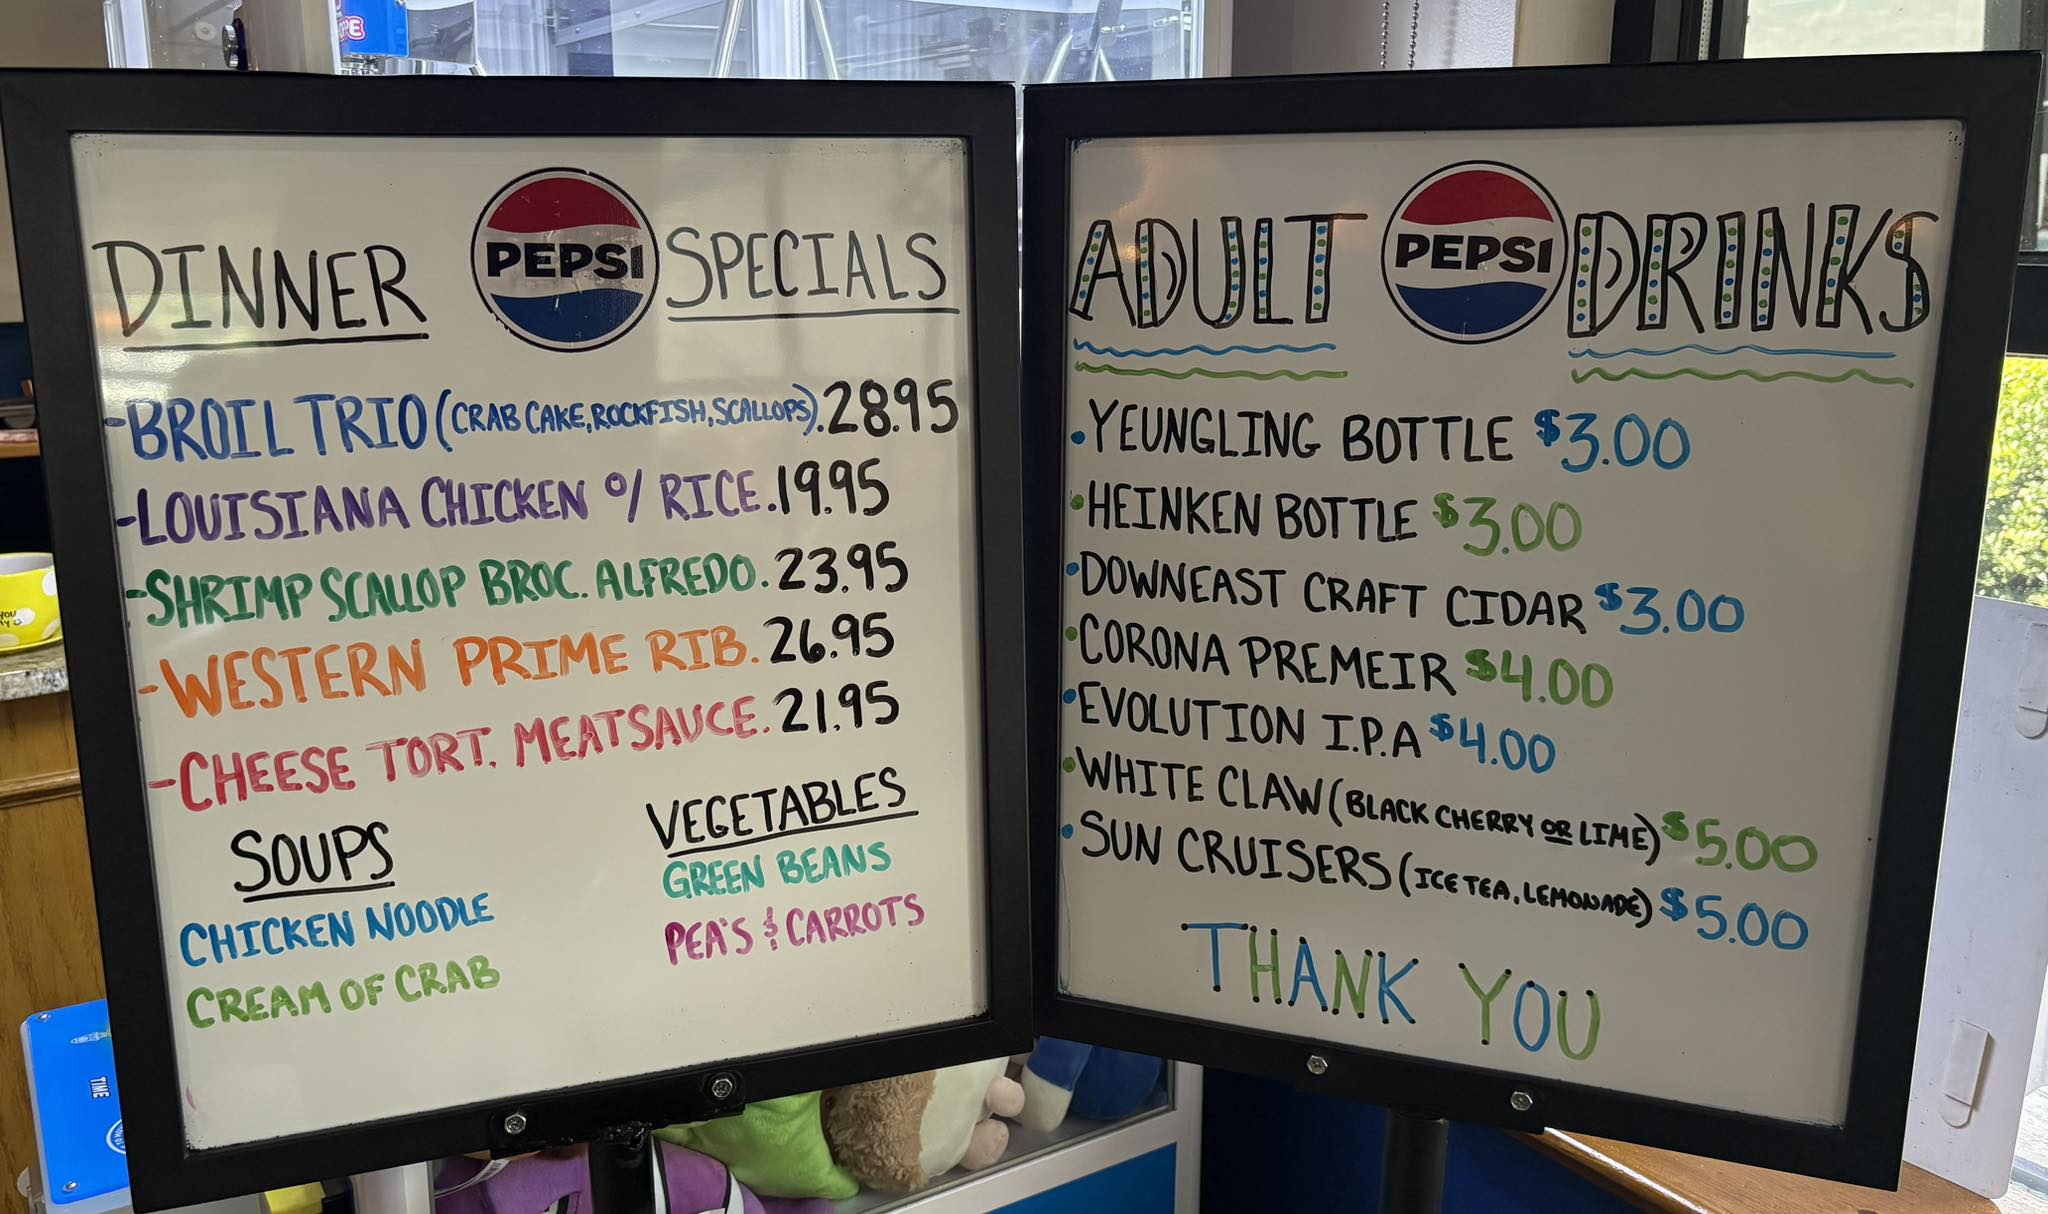 DINNER PEPSI SPECIALS
-BROIL TRIO (CRAB CAKE, ROCKFISH, SCALLOPS). 28.95
-LOUISIANA CHICKEN O/ RICE. 19.95
-SHRIMP SCALLOP BROC. ALFREDO. 23.95
-WESTERN PRIME RIB. 26.95
-CHEESE TORT. MEATSAUCE. 21.95
SOUPS
CHICKEN NOODLE
CREAM OF CRAB
VEGETABLES
GREEN BEANS
PEA'S & CARROTS
ADULT PEPSI DRINKS
•YEUNGLING BOTTLE $3.00
•HEINKEN BOTTLE $3.00
•DOWNEAST CRAFT CIDAR $3.00
•CORONA PREMEIR $4.00
•EVOLUTION I.P.A $4.00
•WHITE CLAW (BLACK CHERRY OR LIME) $5.00
•SUN CRUISERS (ICE TEA, LEMONADE) $5.00
THANK YOU
TIME